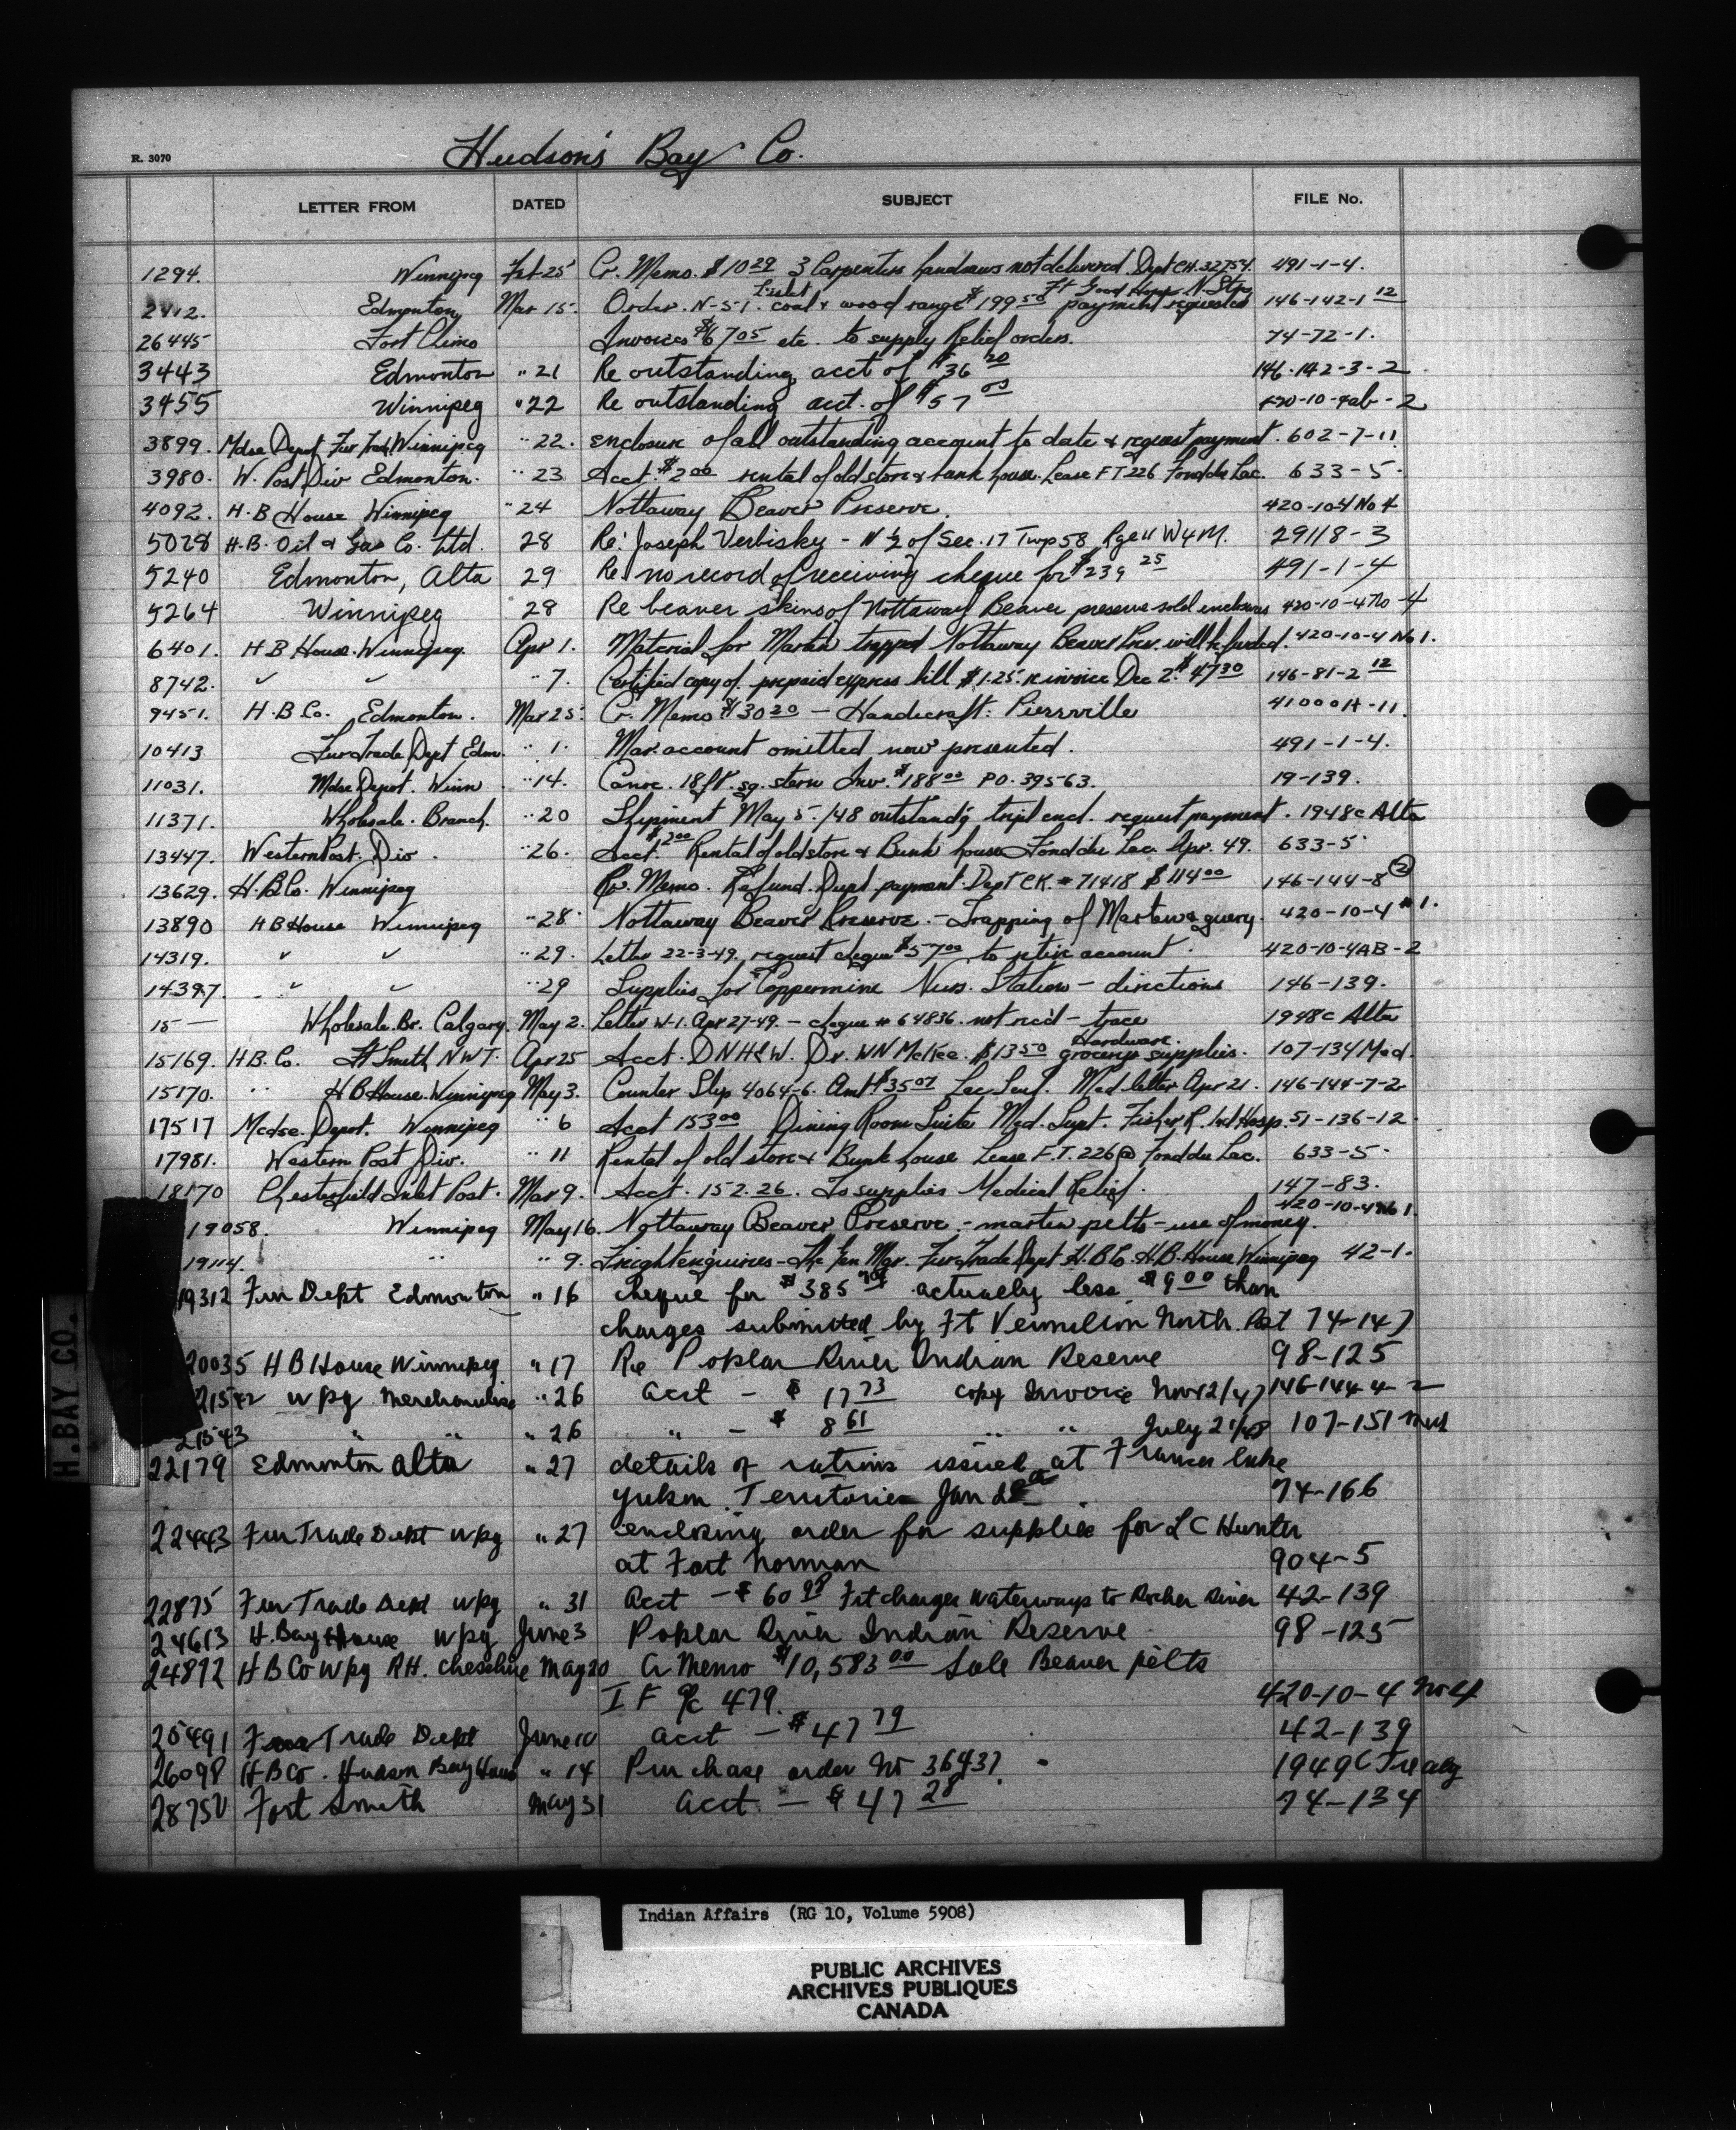 R. 3070
Hudson's Bay Co.
LETTER FROM DATED SUBJECT FILE No.
1294. Winnipeg Feb 25 Cr. Memo. $10 29 3 Carpenters handsaws not delivered Dept CH. 32754. 491-1-4.
Ft Good Hope N. Stn
2412. Edmonton Mar 15. Order. N-S-1. coal & wood range $199 50 payment requested 146-142-1 12
26445 Fort Chimo Invoices $67 05 etc. to supply Relief orders. 74-72-1.
3443 Edmonton " 21 Re outstanding acct of $36 20 146-142-3-2
3455 Winnipeg " 22 Re outstanding acct. of $57 00 420-10-4ab-2
3899. Mdse Depot Fur Trade Winnipeg " 22. enclosure of all outstanding account to date & request payment. 602-7-11
3980. W. Post Div Edmonton. " 23 Acct. $2 00 rental of old store & bunk house. Lease FT 226 Fond du Lac. 633-5.
4092. H.B House Winnipeg " 24 Nottaway Beaver Preserve. 420-10-4 No 4
5028 H.B. Oil & Gas Co. Ltd. 28 Re: Joseph Verbisky - N ½ of Sec. 17 Twp 58 Rge 11 W4M. 29118-3
5240 Edmonton, Alta 29 Re no record of receiving cheque for $239 25 491-1-4
5264 Winnipeg 28 Re beaver skins of Nottaway Beaver preserve sold enclosures 420-10-4 No 4
6401. H B House. Winnipeg. Apr 1. Material for Marten trapped Nottaway Beaver Pres. will be funded. 420-10-4 No 1.
8742. " " " 7. Certified copy of prepaid express bill $1.25. re invoice Dec 2. $47 30 146-81-2 12
9451. H.B Co. Edmonton. Mar 25. Cr. Memo $30 20 - Handicraft: Pierrville 41000A-11.
10413 Fur Trade Dept Edm. " 1. Mar. account omitted now presented. 491-1-4.
11031. Mdse Depot. Winn " 14. Canoe. 18 ft. sq. stern Inv. $188 00 PO. 39563. 19-139.
11371. Wholesale. Branch. " 20 Shipment May 5./48 outstand'g tript encl. request payment. 1948c Alta
13447. Western Post. Div. " 26. Acct. $2 00 Rental of old store & Bunk house Fond du Lac. Apr. 49. 633-5
13629. H.B Co. Winnipeg Cr. Memo. Refund. Dupl. payment. Dept CK. # 71418 $114 00 146-144-8 (2)
13890 HB House Winnipeg " 28 Nottaway Beaver Preserve. - Trapping of Martens query. 420-10-4 #1.
14319. " " " 29. Letter 22-3-49. request cheque $57 00 to retire account. 420-10-4AB-2
14397. " " " 29 Supplies for Coppermine Nurs. Station - directions 146-139.
15 — Wholesale. Br. Calgary. May 2. Letter W-1. Apr 27-49. - cheque # 64836. not rec'd - trace 1948c Alta
15169. H.B. Co. Ft Smith N.W.T. Apr 25 Acct. DNH&W. Dr. WN McKee. $13 50 Hardware. grocery supplies. 107-134 Med.
15170. " HB House. Winnipeg May 3. Counter Slip 4064-6. Amt $35 07 Lac Seul. Med. letter Apr 21. 146-144-7-2
17517 Mdse. Depot. Winnipeg " 6 Acct 153 00 Dining Room Suite Med. Supt. Fisher R. Ind Hosp. 51-136-12.
17981. Western Post Div. " 11 Rental of old store & Bunk house Lease F.T. 226 @ Fond du Lac. 633-5.
18170 Chesterfield Inlet Post. Mar 9. Acct. 152.26. To supplies Medical Relief. 147-83.
19058. Winnipeg May 16. Nottaway Beaver Preserve. - marten pelts - use of money. 420-10-4 No 1.
19114. " " 9. Freight enquiries - The Gen Mgr. Fur Trade Dept H.B Co. H.B. House Winnipeg 42-1.
19312 Fur Dept Edmonton " 16 cheque for $385 actually less $9 00 than
charges submitted by Ft Vermilion North Post 74-147
20035 H B House Winnipeg " 17 Re Poplar River Indian Reserve 98-125
21542 Wpg Merchandise " 26 acct - $17 73 copy Invoice Nov 12/47 146-144-4-2
21543 " " " 26 " - $8 61 " " July 21/48 107-151 Med
22179 Edmonton Alta " 27 details of rations issued at Frances Lake
Yukon Territories Jan 28th. 74-166
22443 Fur Trade Dept Wpg " 27 enclosing order for supplies for L C Hunter
at Fort Norman 904-5
22875 Fur Trade Dept Wpg " 31 Acct - $60 Frt charges Waterways to Rocher River 42-139
24613 H. Bay House Wpg June 3 Poplar River Indian Reserve 98-125
24872 H B Co Wpg R.H. Cheschire May 20 Cr Memo $10,583 00 Sale Beaver pelts
I F a/c 479. 420-10-4 No 4
25491 Fur Trade Dept June 10 acct - $47 79 42-139
26098 H B Co. Hudson Bay House " 14 Purchase order No 36437. 1949 C Treaty
28750 Fort Smith May 31 acct - $47 28 74-134
H.BAY CO.
Indian Affairs (RG 10, Volume 5908)
PUBLIC ARCHIVES
ARCHIVES PUBLIQUES
CANADA